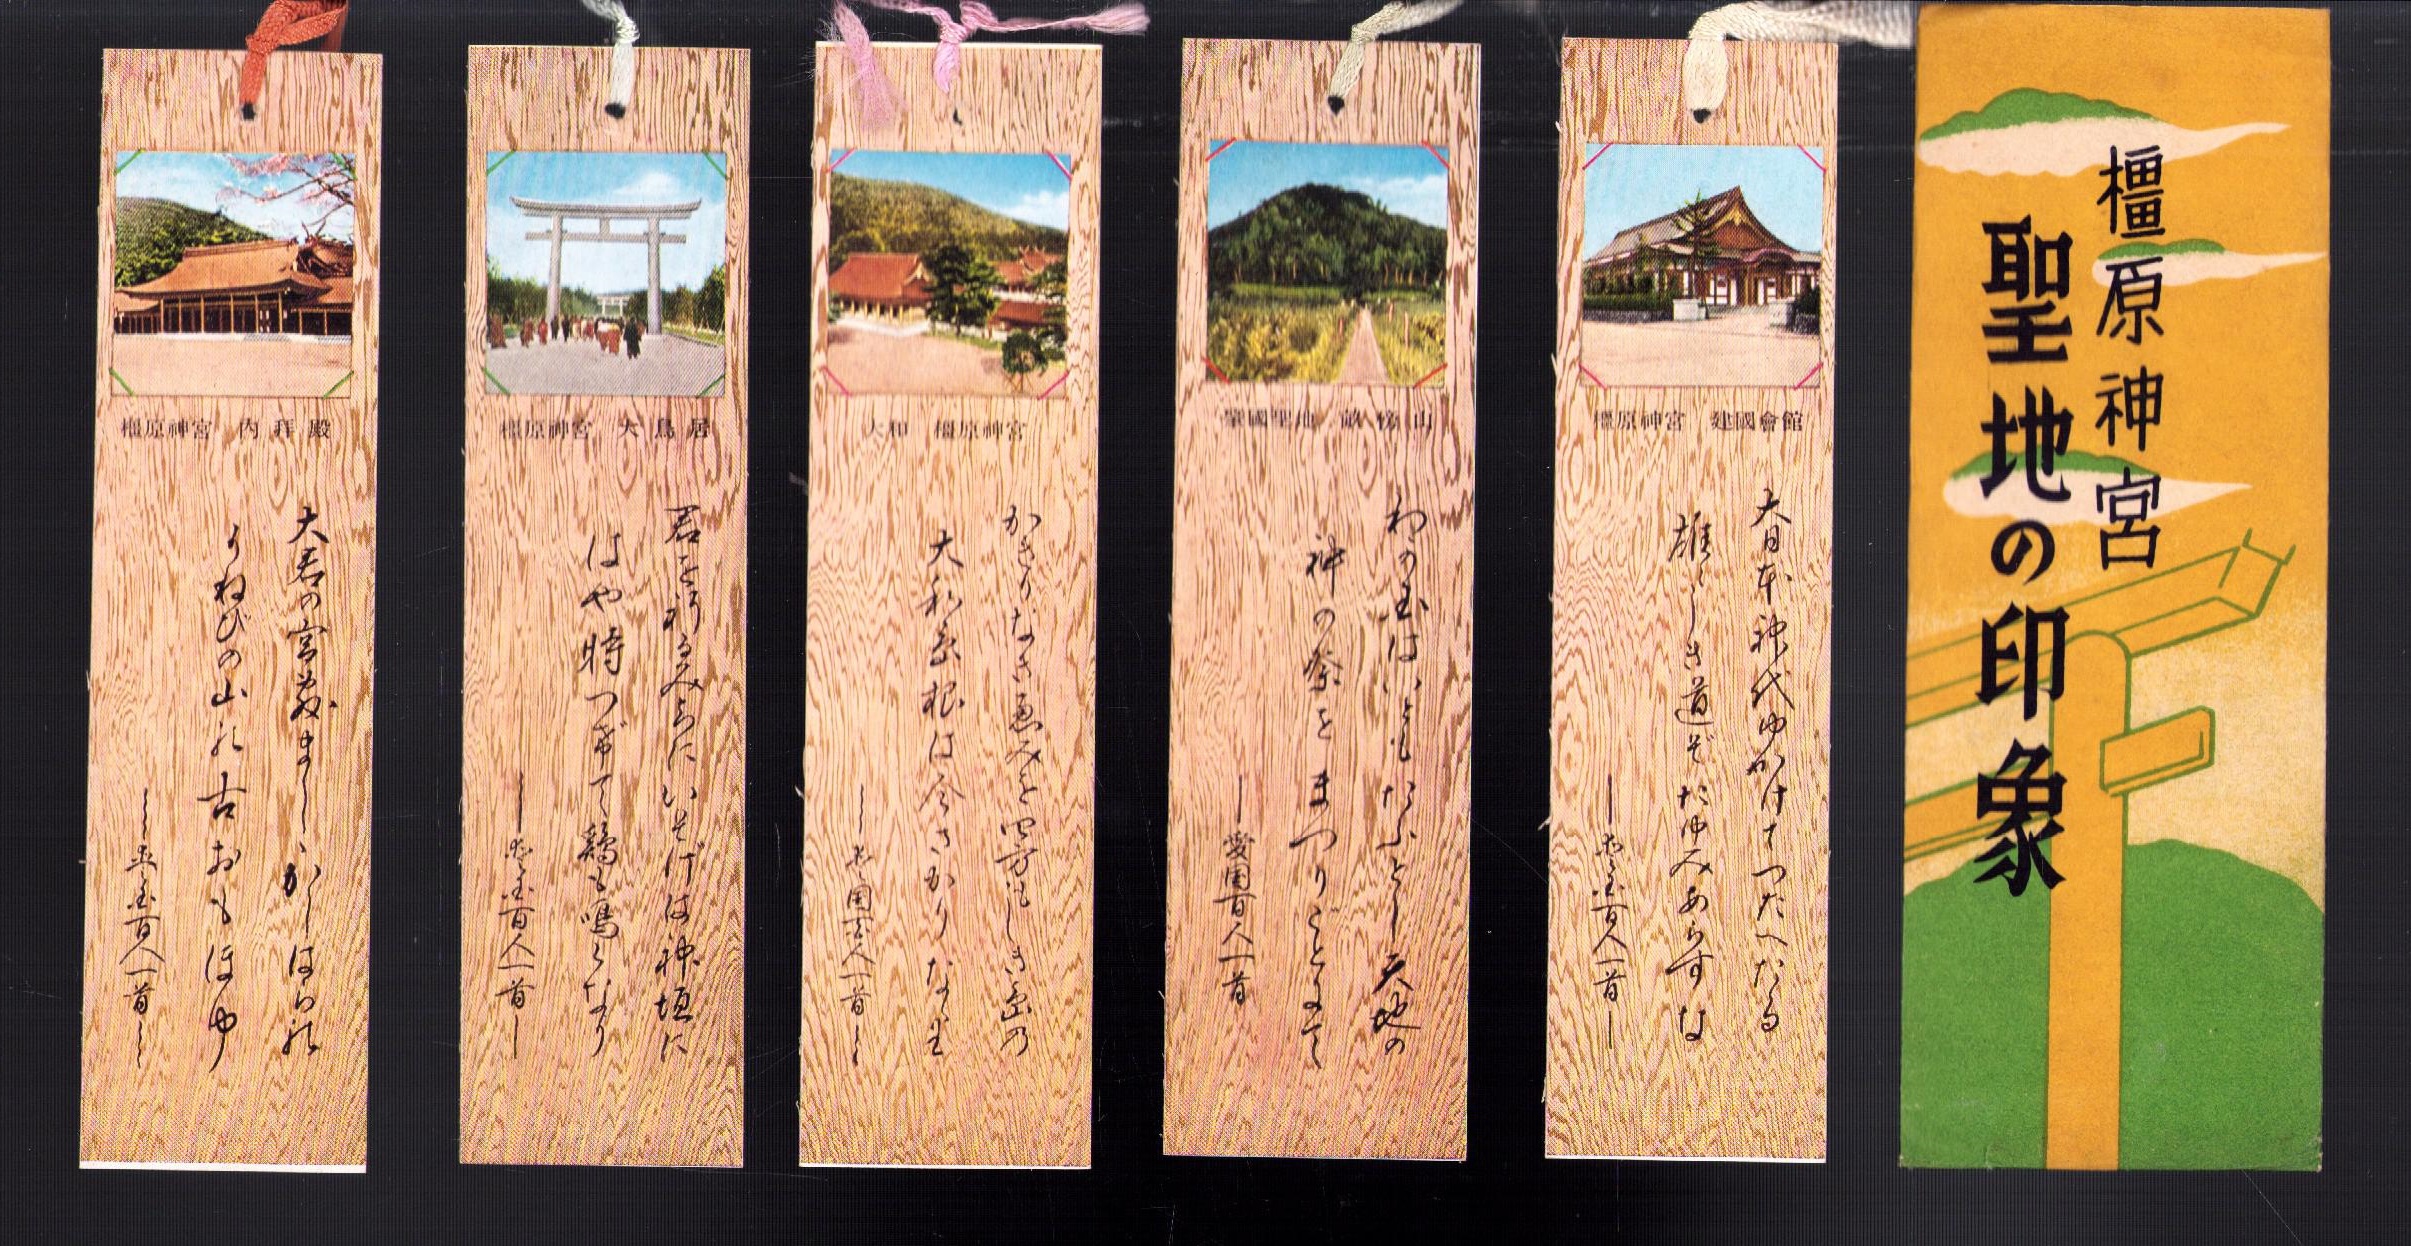 橿原神宮
聖地の印象
橿原神宮 建國會館
大日本神代ゆかけてつたへたる
雄々しき道ぞたゆみあらすな
―愛国百人一首―
肇國聖地 畝傍山
わが国はいともたふとし天地の
神の祭をまつりごとにて
―愛国百人一首
大和 橿原神宮
かきりなき恵みを四方にしき島の
大和島根は今さかりなり
―愛国百人一首―
橿原神宮 大鳥居
君を祈るみちにいそげは神垣に
はや時つげて鶏も鳴くなり
―愛国百人一首―
橿原神宮 内拝殿
大君の宮敷ましゝかしはらの
うねびの山の古おもほゆ
―愛国百人一首―